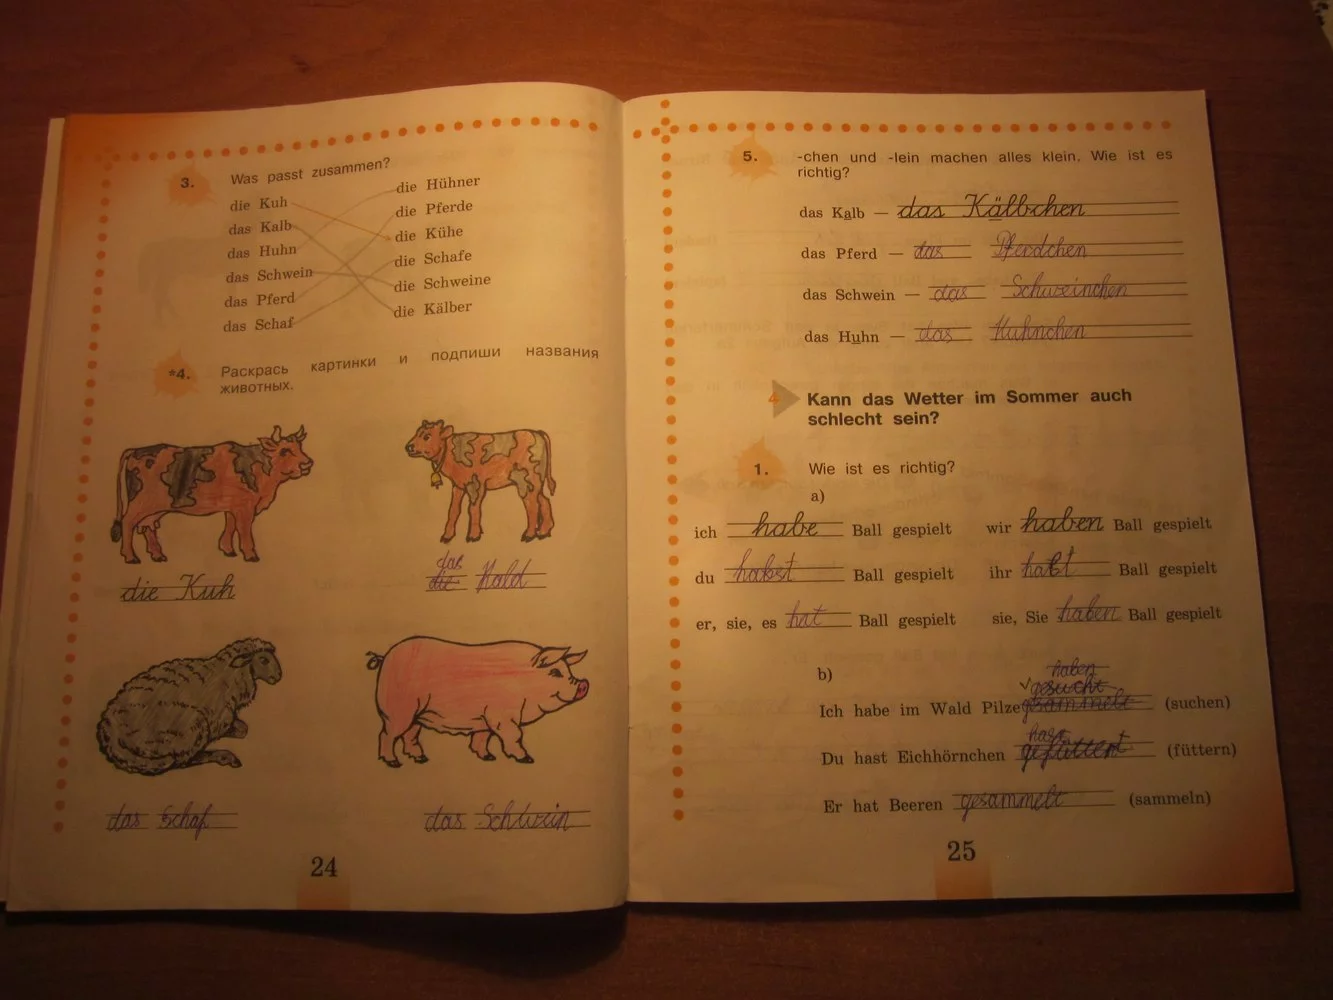 3. Was passt zusammen?
die Kuh die Hühner
das Kalb die Pferde
das Huhn die Kühe
das Schwein die Schafe
das Pferd die Schweine
das Schaf die Kälber
*4. Раскрась картинки и подпиши названия
животных.
die Kuh
das
die Kald
das Schaf das Schwein
24
5. -chen und -lein machen alles klein. Wie ist es
richtig?
das Kalb — das Kälbchen
das Pferd — das Pferdchen
das Schwein — das Schweinchen
das Huhn — das Huhnchen
4 Kann das Wetter im Sommer auch
schlecht sein?
1. Wie ist es richtig?
a)
ich habe Ball gespielt wir haben Ball gespielt
du habst Ball gespielt ihr habt Ball gespielt
er, sie, es hat Ball gespielt sie, Sie haben Ball gespielt
b)
haben
gesucht
Ich habe im Wald Pilze gesammelt (suchen)
Du hast Eichhörnchen gefüttert (füttern)
Er hat Beeren gesammelt (sammeln)
25